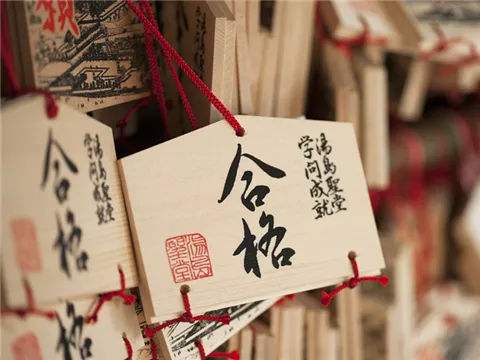 願
合格
湯島聖堂
学問成就
湯島
聖堂
学問成就
合格
格